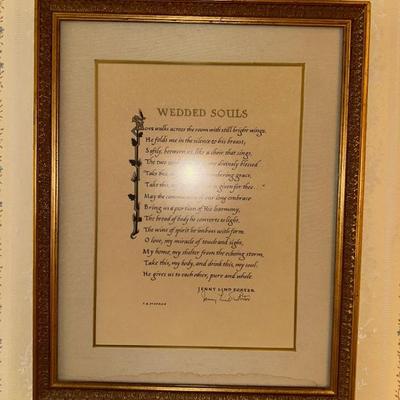 WEDDED SOULS
Love walks across the room with still bright wings.
He folds me in the silence to his breast;
Softly, between us, like a choir that sings,
The two divinely blessed
"Take this grace,
Take this, is given for thee..."
May the our long embrace
Bring us a portion of His harmony,
The bread of body he converts to light,
The wine of spirit he imbues with form.
O love, my miracle of touch and sight,
My home, my shelter from the echoing storm,
Take this, my body, and drink this, my soul.
He gives us to each other, pure and whole.
JENNY LIND PORTER
Jenny Lind Porter